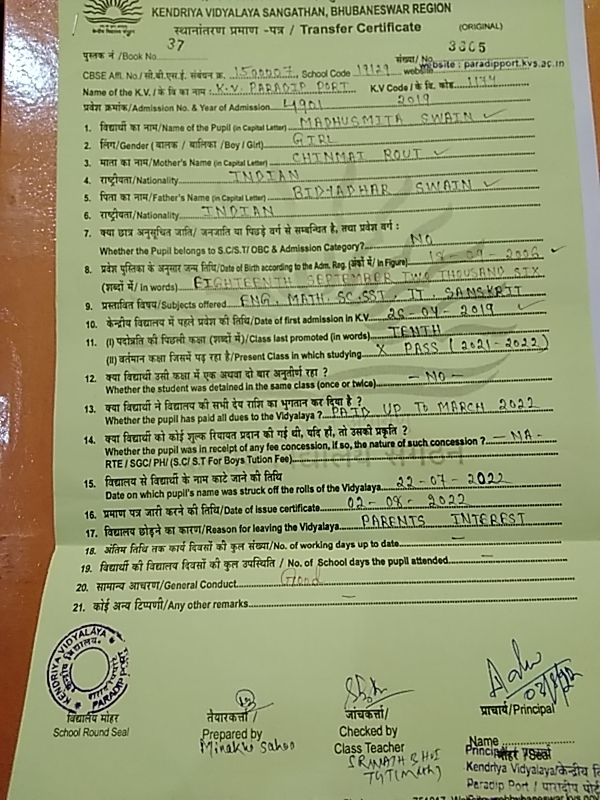 KENDRIYA VIDYALAYA SANGATHAN, BHUBANESWAR REGION
स्थानांतरण प्रमाण -पत्र / Transfer Certificate (ORIGINAL)
पुस्तक नं /Book No. 37 संख्या/ No. 3365
website : paradipport.kvs.ac.in
CBSE Affl. No./ सी.बी.एस.ई. संबंधन क्र. 1500007, School Code 19129 website
Name of the K.V./ के वि का नाम : K.V. PARADIP PORT K.V Code/ के वि. कोड 1174
प्रवेश क्रमांक/Admission No. & Year of Admission 4901 2019
1. विद्यार्थी का नाम/Name of the Pupil (in Capital Letter) MADHUSMITA SWAIN
2. लिंग/Gender (बालक / बालिका /Boy / Girl) GIRL
3. माता का नाम/Mother's Name (in Capital Letter) CHINMAI ROUT
4. राष्ट्रीयता/Nationality INDIAN
5. पिता का नाम/Father's Name (in Capital Letter) BIDYADHAR SWAIN
6. राष्ट्रीयता/Nationality INDIAN
7. क्या छात्र अनुसूचित जाति/ जनजाति या पिछड़े वर्ग से सम्बन्धित है, तथा प्रवेश वर्ग :
Whether the Pupil belongs to S.C/S.T/ OBC & Admission Category? NO
8. प्रवेश पुस्तिका के अनुसार जन्म तिथि/Date of Birth according to the Adm. Reg. (अंकों में/ In Figure) 18-09-2006
(शब्दों में/ In words) EIGHTEENTH SEPTEMBER TWO THOUSAND SIX
9. प्रस्तावित विषय/Subjects offered ENG, MATH, SC, SST, IT, SANSKRIT
10. केन्द्रीय विद्यालय में पहले प्रवेश की तिथि/Date of first admission in K.V. 26-04-2019
11. (I) पदोन्नति की पिछली कक्षा (शब्दों में)/Class last promoted (in words) TENTH
(II) वर्तमान कक्षा जिसमें पढ़ रहा है/Present Class in which studying X PASS (2021-2022)
12. क्या विद्यार्थी उसी कक्षा में एक अथवा दो बार अनुतीर्ण रहा ?
Whether the student was detained in the same class (once or twice) - NO -
13. क्या विद्यार्थी ने विद्यालय की सभी देय राशि का भुगतान कर दिया है ?
Whether the pupil has paid all dues to the Vidyalaya ? PAID UP TO MARCH 2022
14. क्या विद्यार्थी को कोई शुल्क रियायत प्रदान की गई थी, यदि हाँ, तो उसकी प्रकृति ?
Whether the pupil was in receipt of any fee concession, if so, the nature of such concession ? - NA -
RTE / SGC/ PH/ (S.C/ S.T For Boys Tution Fee)
15. विद्यालय से विद्यार्थी के नाम काटे जाने की तिथि
Date on which pupil's name was struck off the rolls of the Vidyalaya 22-07-2022
16. प्रमाण पत्र जारी करने की तिथि/Date of issue certificate 02-08-2022
17. विद्यालय छोड़ने का कारण/Reason for leaving the Vidyalaya PARENTS INTEREST
18. अंतिम तिथि तक कार्य दिवसों की कुल संख्या/No. of working days up to date -
19. विद्यार्थी की विद्यालय दिवसों की कुल उपस्थिति / No. of School days the pupil attended -
20. सामान्य आचरण/General Conduct Good
21. कोई अन्य टिप्पणी/Any other remarks -
KENDRIYA VIDYALAYA PARADIP PORT
केन्द्रीय विद्यालय
विद्यालय मोहर तैयारकर्ता जाँचकर्ता प्राचार्य/Principal
School Round Seal Prepared by Checked by Name
Minakshi Sahoo Class Teacher मोहर /Seal
SRINATH BHOI Principal
TGT (Math) Kendriya Vidyalaya/केन्द्रीय वि
Paradip Port / पारादीप पोर्ट